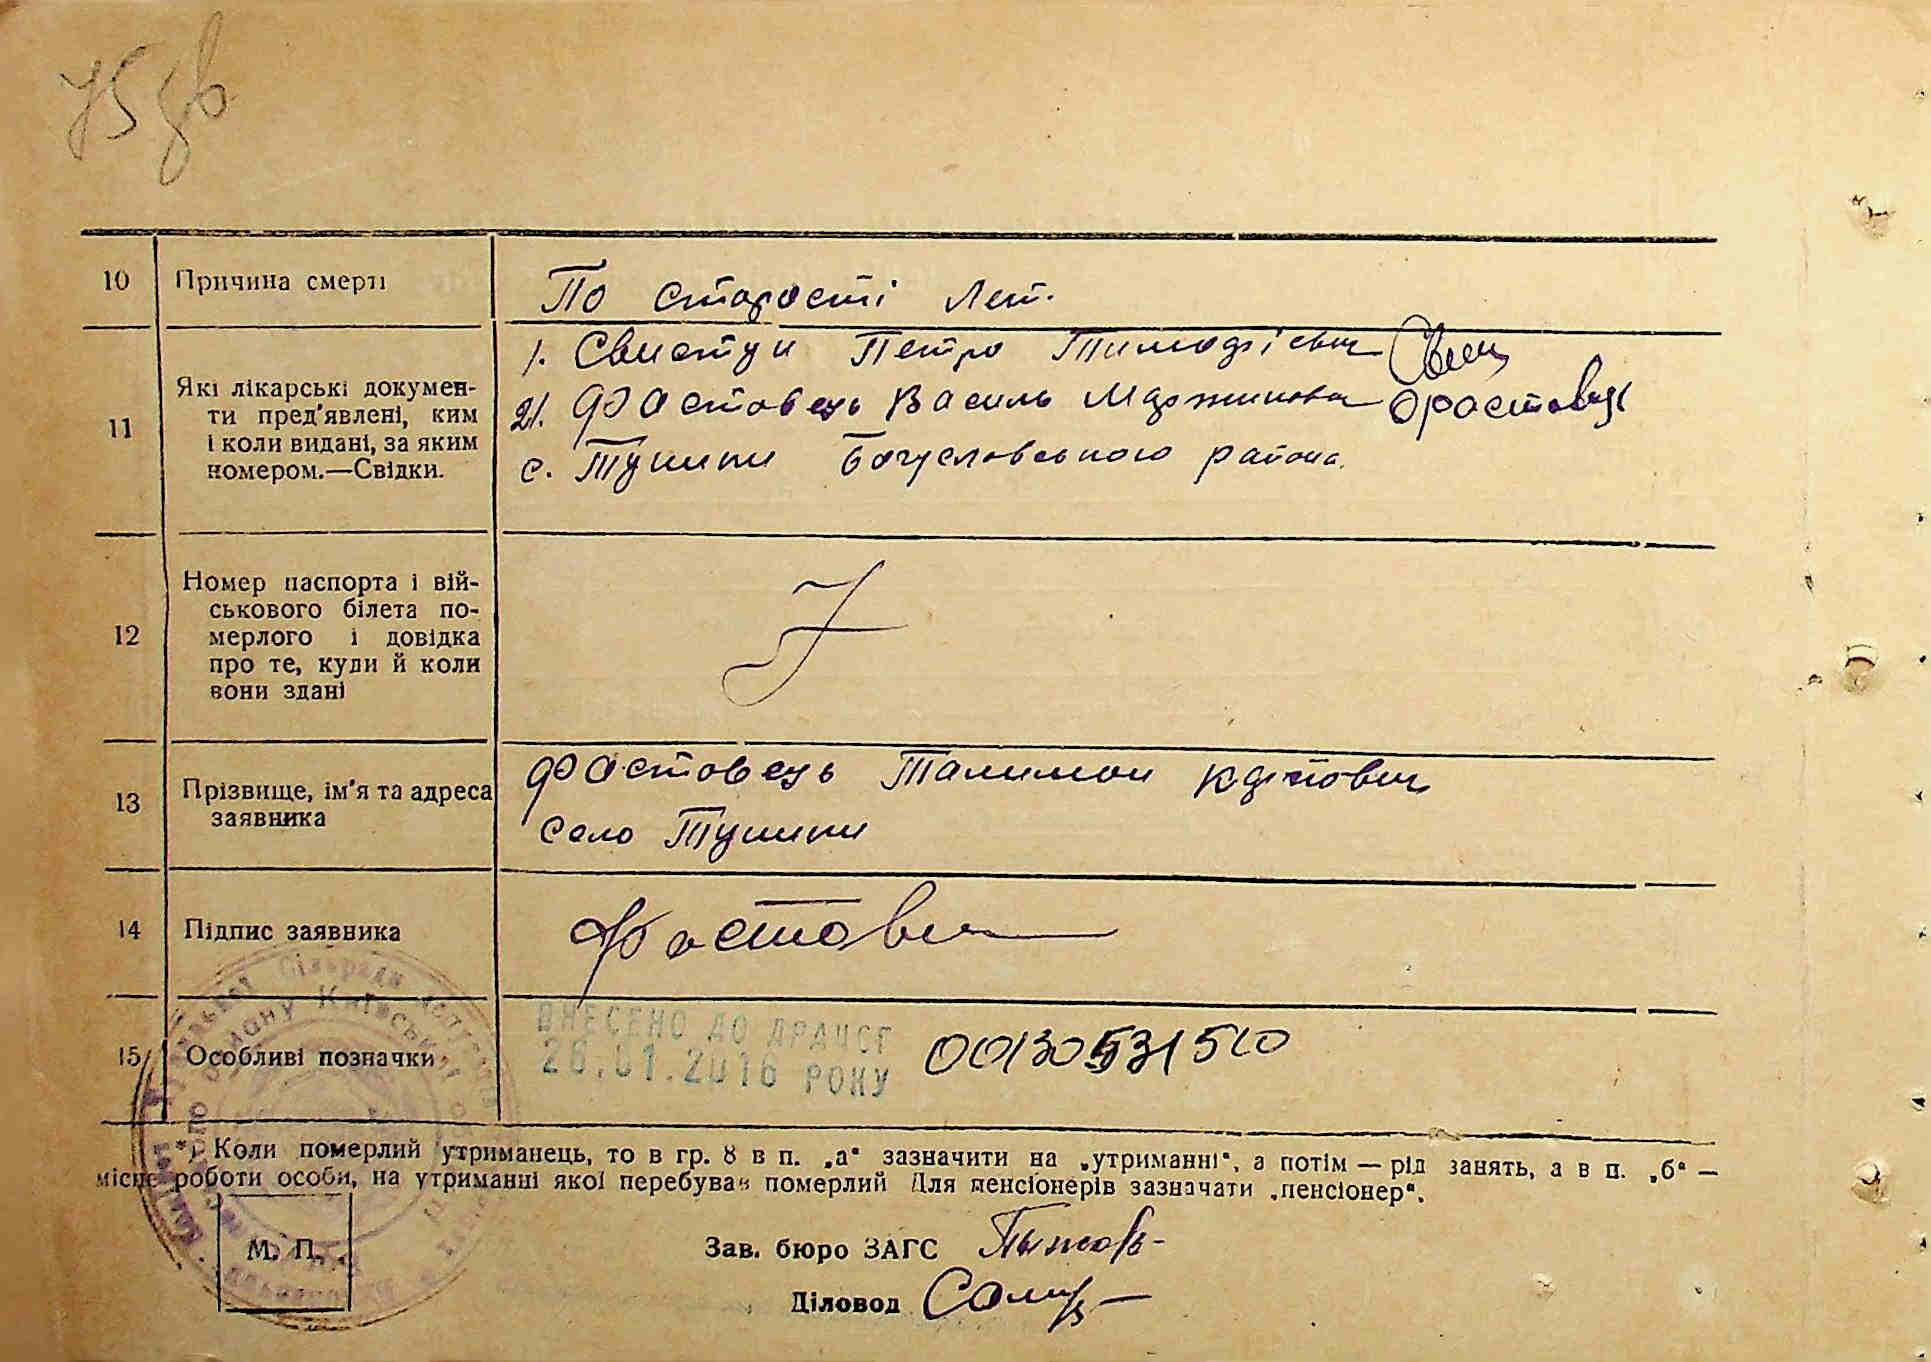 75 зв
10 Причина смерті
По старості лет.
11 Які лікарські докумен-
ти пред'явлені, ким
і коли видані, за яким
номером.—Свідки.
1. Свистун Петро Тимофієвич
2. Фастовець Василь
с. Тушини Богуславського района.
12 Номер паспорта і вій-
ськового білета по-
мерлого і довідка
про те, куди й коли
вони здані
13 Прізвище, ім'я та адреса
заявника
Фастовець
село Тушини
14 Підпис заявника
15 Особливі позначки
ВНЕСЕНО ДО ДРАЦСГ
26.01.2016 РОКУ
00130531510
*) Коли померлий утриманець, то в гр. 8 в п. „а“ зазначити на „утриманні“, а потім — рід занять, а в п. „б“ —
місце роботи особи, на утриманні якої перебував померлий Для пенсіонерів зазначати „пенсіонер“.
М. П.
Зав. бюро ЗАГС
Діловод